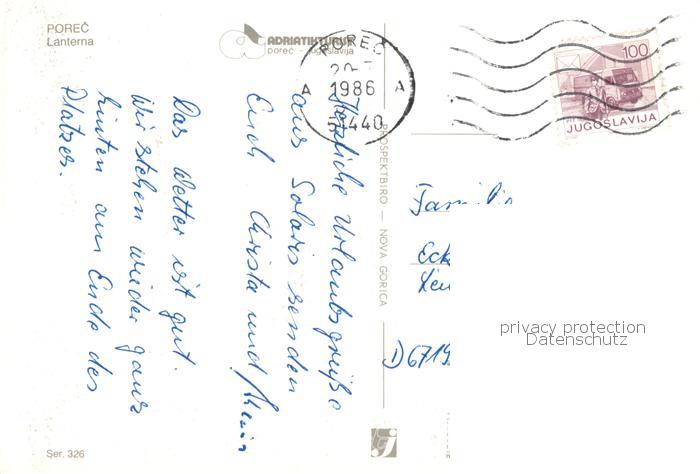 POREČ
Lanterna
ADRIATIKTURIST
poreč - jugoslavija
POREČ
A 1986 A
51440
100
JUGOSLAVIJA
Herzliche Urlaubsgrüße
aus Solaris senden
Euch Christa und
Das Wetter ist gut.
Wir stehen wieder ganz
hinten am Ende des
Platzes.
PROSPEKTBIRO — NOVA GORICA
Famili
Eck
D 6719
privacy protection
Datenschutz
Ser. 326